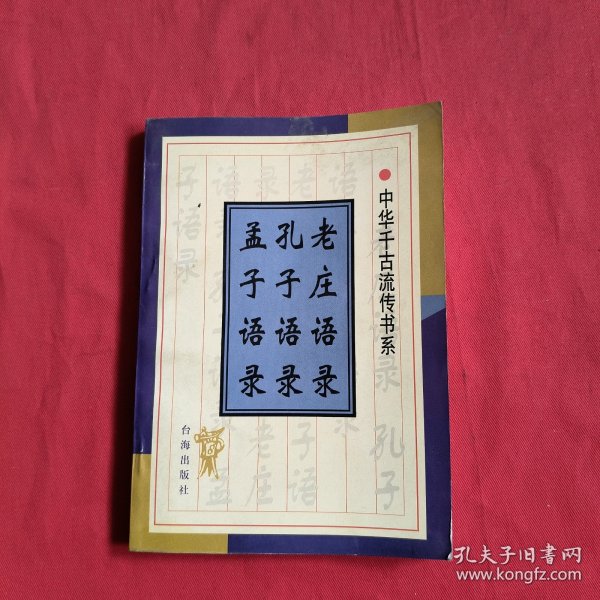 中华千古流传书系
老庄语录
孔子语录
孟子语录
台海出版社
孔夫子旧書网
www.kongfz.com